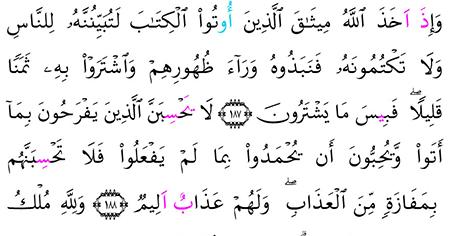 وَإِذَ اَخَذَ ٱللَّهُ مِيثَٰقَ ٱلَّذِينَ أُوتُوا۟ ٱلْكِتَٰبَ لَتُبَيِّنُنَّهُۥ لِلنَّاسِ
وَلَا تَكْتُمُونَهُۥ فَنَبَذُوهُ وَرَآءَ ظُهُورِهِمْ وَٱشْتَرَوْا۟ بِهِۦ ثَمَنًا
قَلِيلًاۖ فَبِيسَ مَا يَشْتَرُونَ ١٨٧ لَا يَحْسِبَنَّ ٱلَّذِينَ يَفْرَحُونَ بِمَآ
أَتَوا۟ وَّيُحِبُّونَ أَن يُحْمَدُوا۟ بِمَا لَمْ يَفْعَلُوا۟ فَلَا تَحْسِبَنَّهُم
بِمَفَازَةٍ مِّنَ ٱلْعَذَابِۖ وَلَهُمْ عَذَابٌ اَلِيمٌ ١٨٨ وَلِلَّهِ مُلْكُ